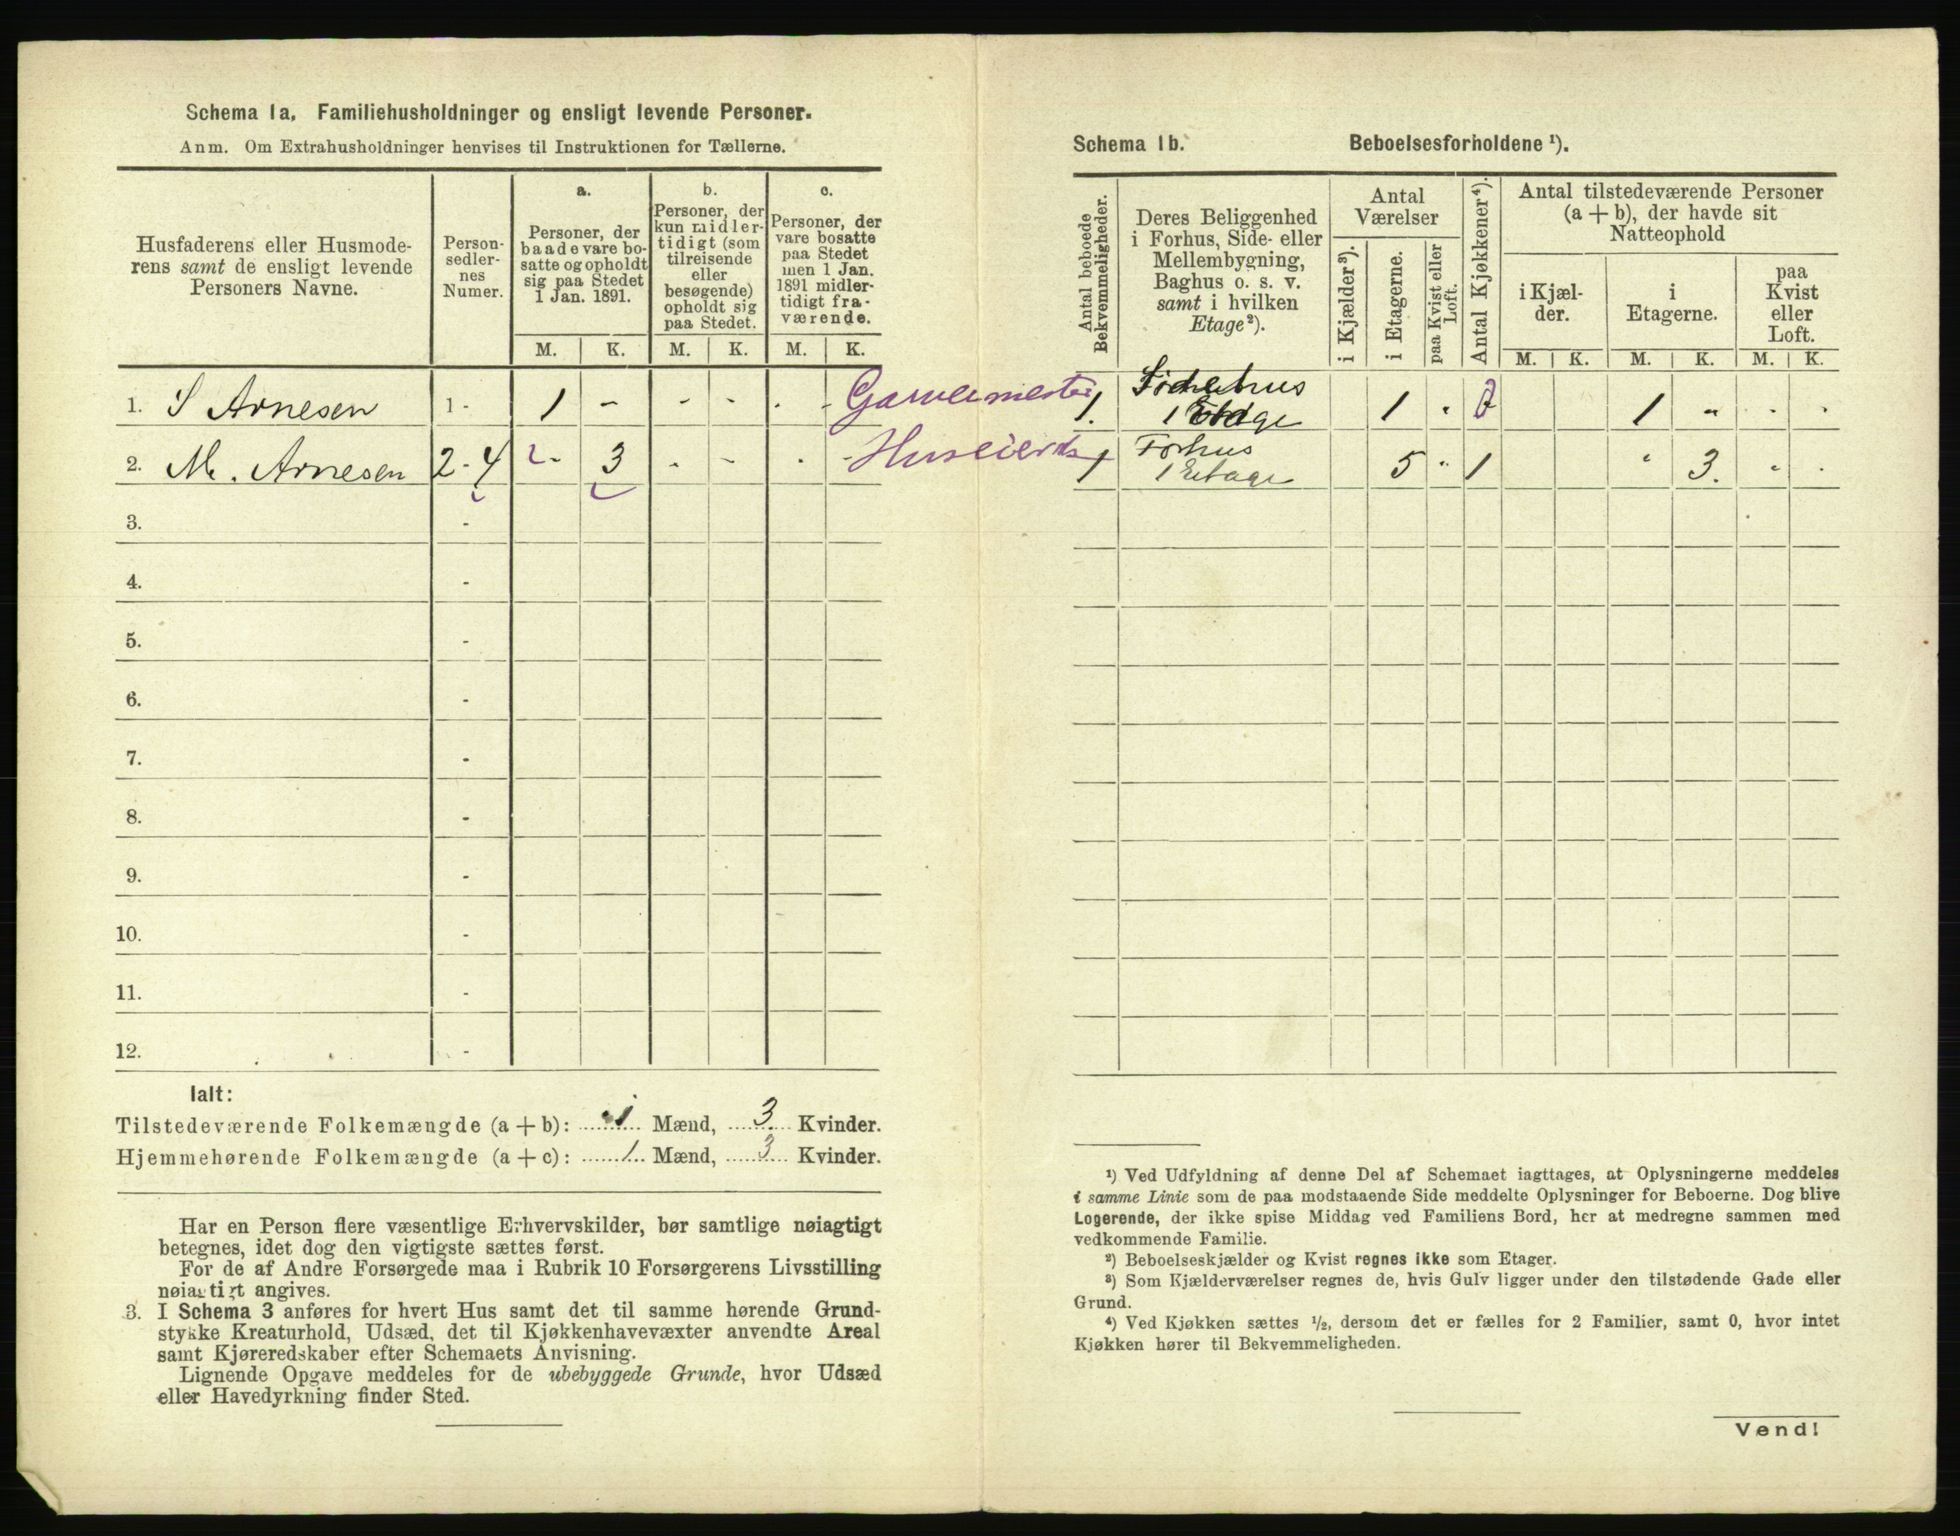 Schema 1a. Familiehusholdninger og ensligt levende Personer.
Anm. Om Extrahusholdninger henvises til Instruktionen for Tællerne.
Husfaderens eller Husmoderens samt de ensligt levende Personers Navne.
Personsedlernes Numer.
a.
Personer, der baade vare bosatte og opholdt sig paa Stedet 1 Jan. 1891.
b.
Personer, der kun midlertidigt (som tilreisende eller besøgende) opholdt sig paa Stedet.
c.
Personer, der vare bosatte paa Stedet men 1 Jan. 1891 midlertidigt fraværende.
M. K. M. K. M. K.
1. S Arnesen 1 - 1 - - - . - Garvermester
2. M. Arnesen 2-4 - 3 - - . - Huseierske
3. -
4. -
5. -
6. -
7. -
8. -
9. -
10. -
11. -
12. -
Ialt:
Tilstedeværende Folkemængde (a + b): 1 Mænd, 3. Kvinder.
Hjemmehørende Folkemængde (a + c): 1 Mænd, 3 Kvinder.
Har en Person flere væsentlige Erhvervskilder, bør samtlige nøiagtigt
betegnes, idet dog den vigtigste sættes først.
For de af Andre Forsørgede maa i Rubrik 10 Forsørgerens Livsstilling
nøiagtigt angives.
3. I Schema 3 anføres for hvert Hus samt det til samme hørende Grund-
stykke Kreaturhold, Udsæd, det til Kjøkkenhavevæxter anvendte Areal
samt Kjøreredskaber efter Schemaets Anvisning.
Lignende Opgave meddeles for de ubebyggede Grunde, hvor Udsæd
eller Havedyrkning finder Sted.
Schema 1b. Beboelsesforholdene ¹).
Antal beboede Bekvemmeligheder.
Deres Beliggenhed i Forhus, Side- eller Mellembygning, Baghus o. s. v. samt i hvilken Etage²).
Antal Værelser
i Kjælder³).
i Etagerne.
paa Kvist eller Loft.
Antal Kjøkkener⁴).
Antal tilstedeværende Personer (a + b), der havde sit Natteophold
i Kjælder.
i Etagerne.
paa Kvist eller Loft.
M. K. M. K. M. K.
1. Sidehus
1 Etage 1 " 0 1 " . .
1 Forhus
1 Etage 5 " 1 " 3. " .
¹) Ved Udfyldning af denne Del af Schemaet iagttages, at Oplysningerne meddeles
i samme Linie som de paa modstaaende Side meddelte Oplysninger for Beboerne. Dog blive
Logerende, der ikke spise Middag ved Familiens Bord, her at medregne sammen med
vedkommende Familie.
²) Beboelseskjælder og Kvist regnes ikke som Etager.
³) Som Kjælderværelser regnes de, hvis Gulv ligger under den tilstødende Gade eller
Grund.
⁴) Ved Kjøkken sættes ½, dersom det er fælles for 2 Familier, samt 0, hvor intet
Kjøkken hører til Bekvemmeligheden.
Vend!